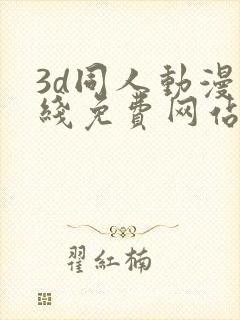 3d同人動漫
綫免費网站
翟紅楠